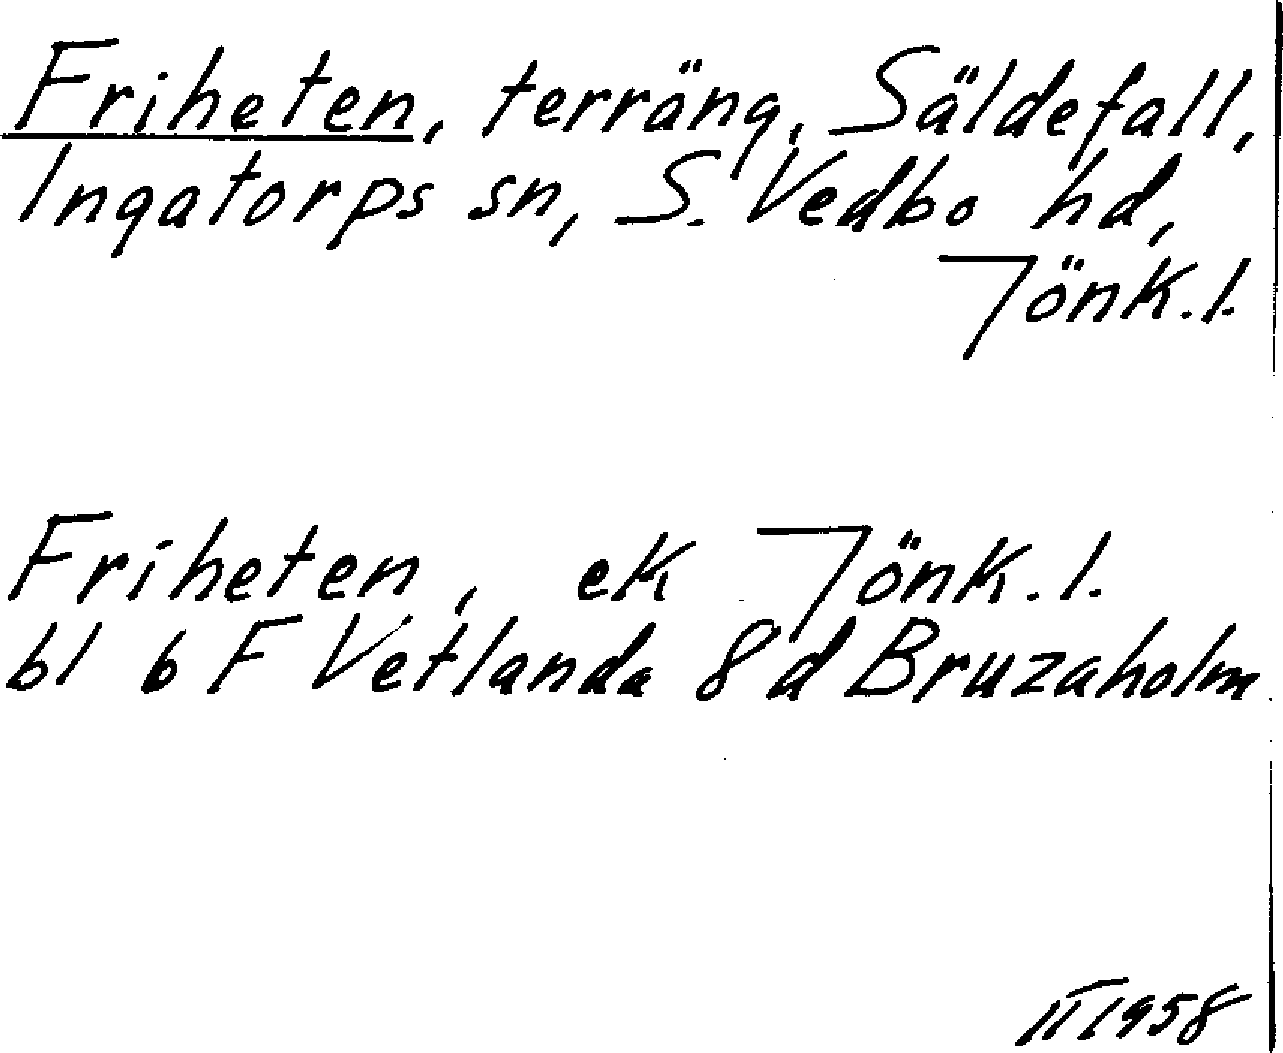 Friheten, terräng, Säldefall,
Ingatorps sn, S. Vedbo hd,
Jönk.l.
Friheten, ek Jönk.l.
bl 6 F Vetlanda 8 d Bruzaholm
II 1958